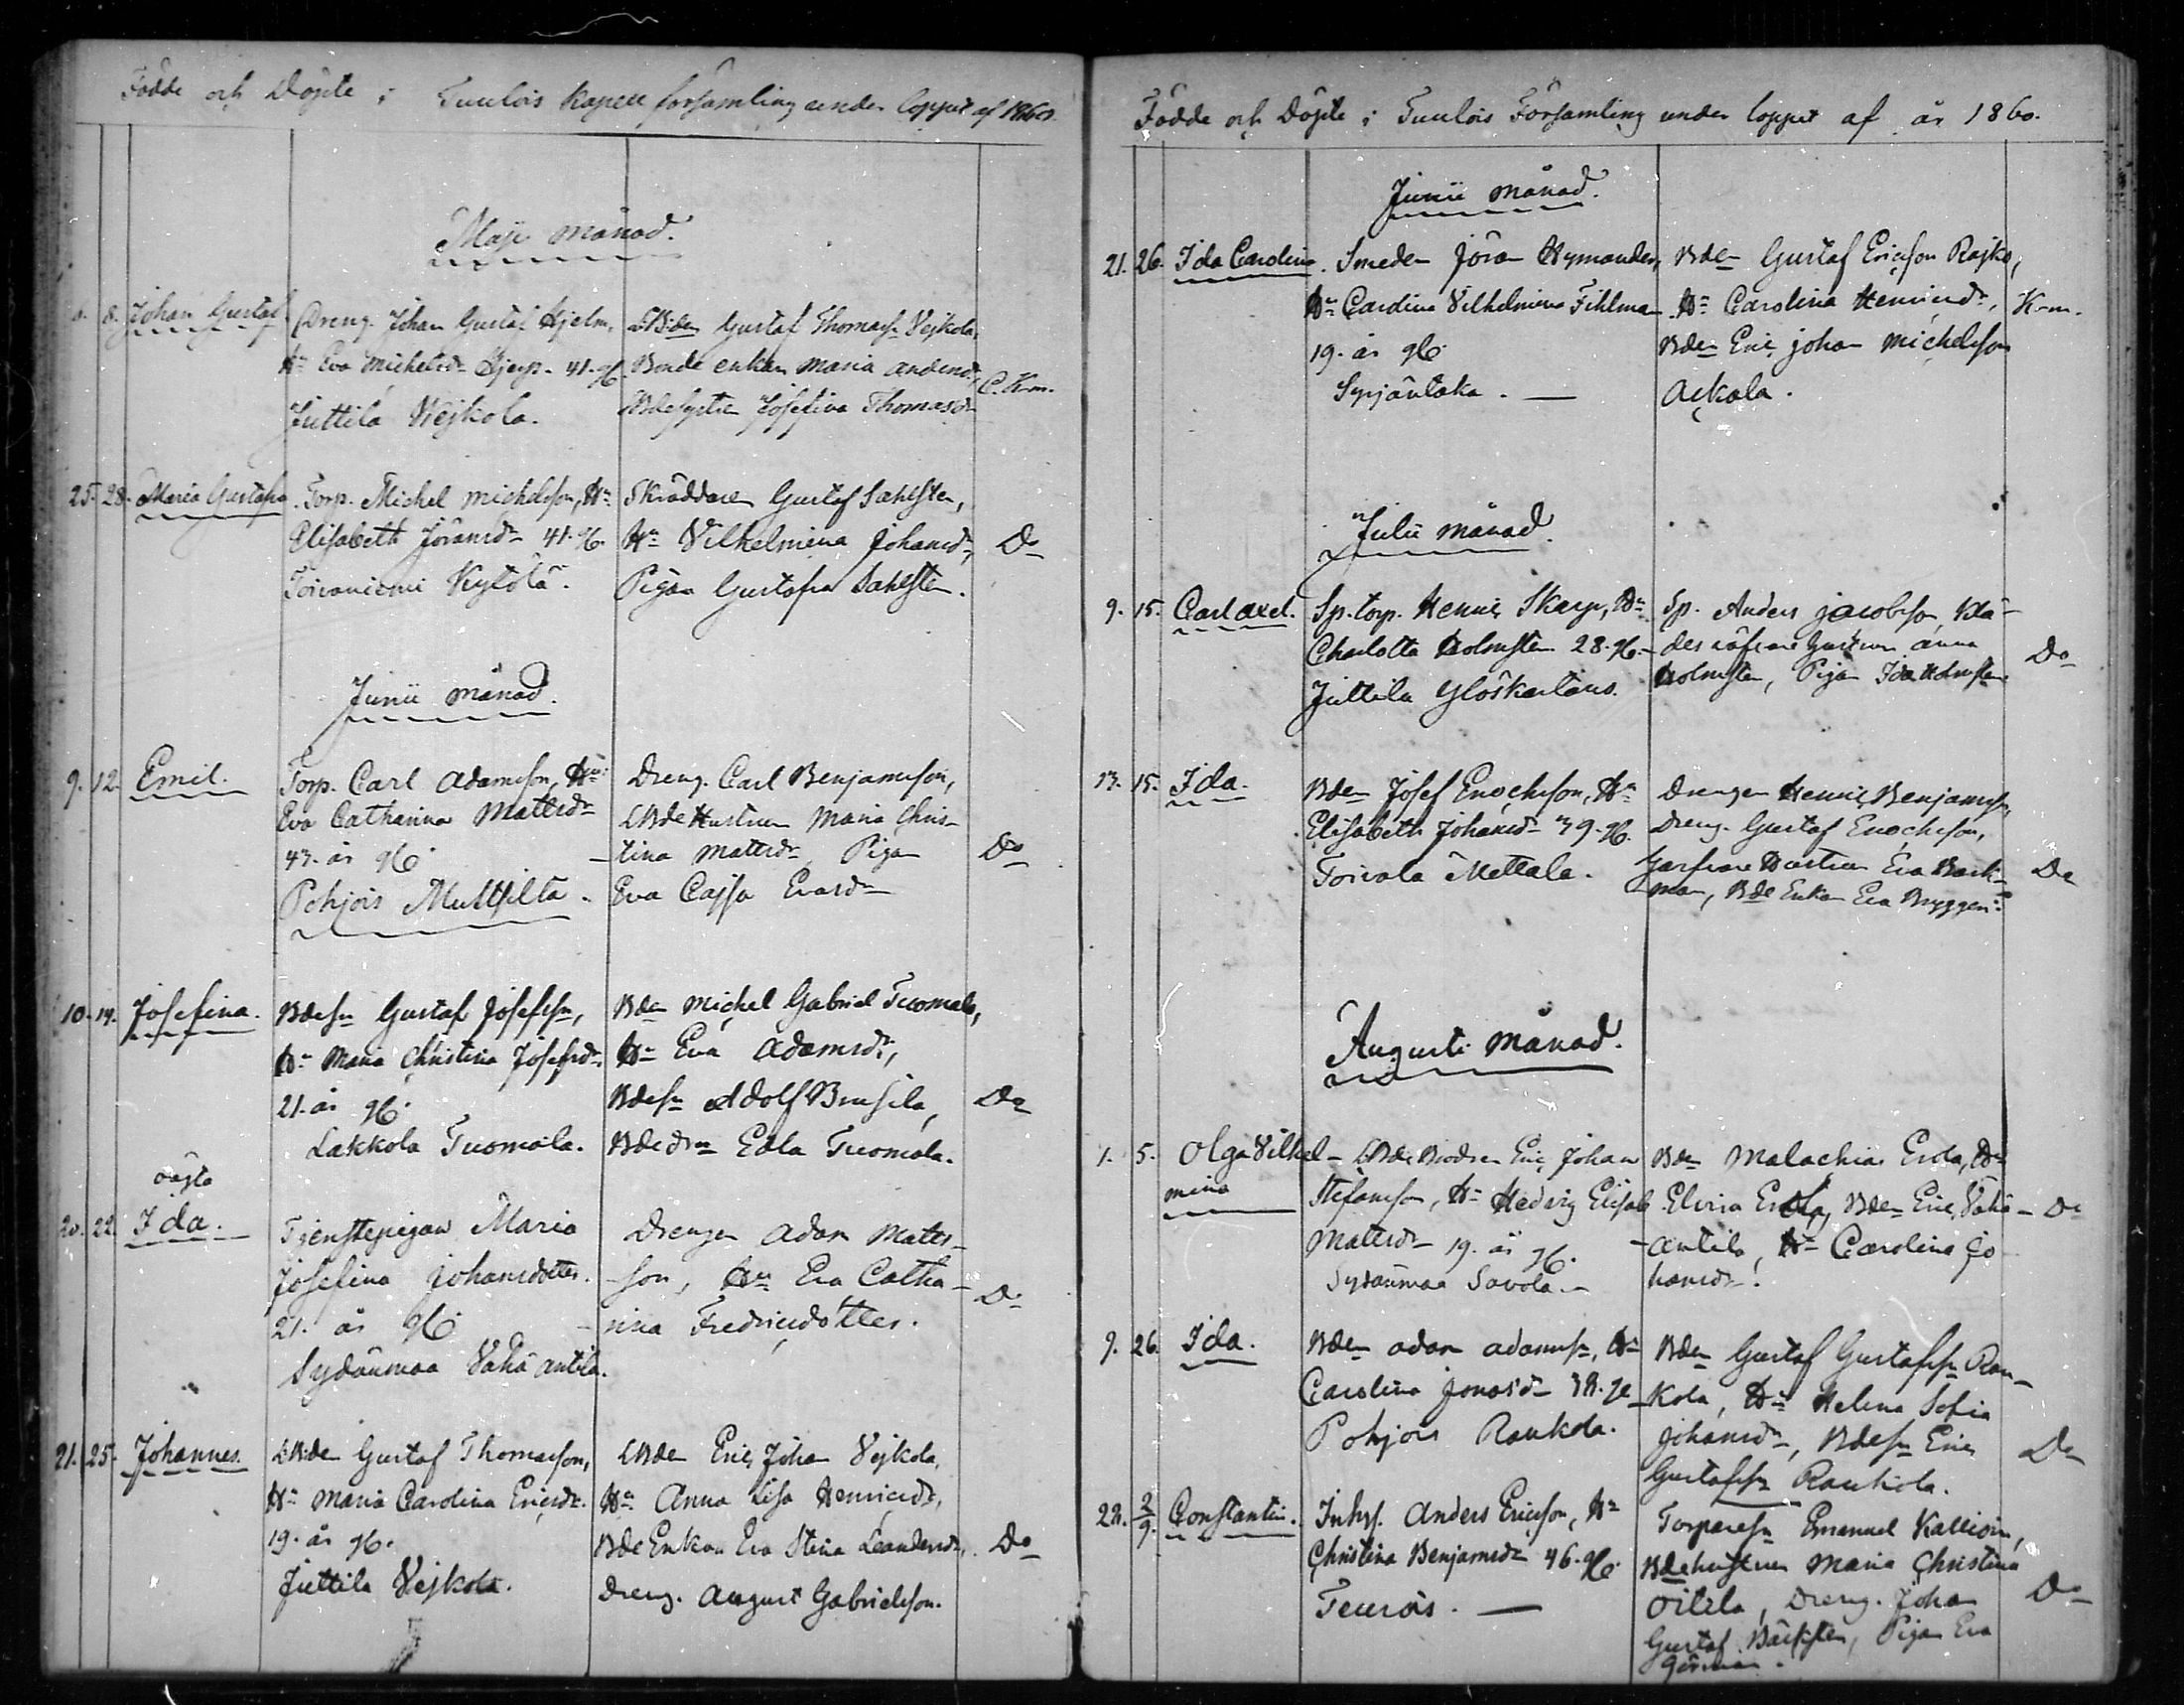 Födde och Döpte i Tuulois Kapell församling under loppet af 1860.
Maji månad.
6. 8. Johan Gustaf
Dreng. Johan Gustaf Hjelm,
Hu Eva Michelsdr 41. gl.
Juttila Wejkola.
LBden Gustaf Thomass Vejkola,
Bonde enkan Maria Andersdr,
Josefina Thomasdr
C. Km.
25. 28. Maria Gustafva
Torp. Michel Michelsson, Hu
Elisabeth Göransdr 41. gl.
Toivaniemi Kytölä.
Skräddaren Gustaf Sahlsten,
Hu Vilhelmina Johansdr,
Pigan Gustafva Sahlsten.
Do
Junii månad.
9. 12. Emil.
Torp. Carl Adamsson, Hu
Eva Catharina Mattsdr
43. år gl.
Pohjois Muttsilta.
Dreng. Carl Benjaminsson,
LBde Hustrun Maria Chris-
tina Mattsdr, Pigan
Eva Cajsa Evasdr
Do
10. 14. Josefina.
Bdesn Gustaf Josefsn,
Hu Maria Christina Josefsdr
21. år gl.
Lakkola Tuomola.
Bden Michel Gabriel Tuomola,
Hu Eva Adamsdr,
Bdesn Adolf Brusila,
Bdedrn Edla Tuomola.
Do
oägta
20. 22. Ida.
Tjenstepigan Maria
Josefina Johansdotter.
21. år gl.
Sydänmaa Vähä antila.
Drengen Adam Matts-
son, Hu Eva Catha-
rina Fredricsdotter.
Do
21. 25. Johannes.
LBden Gustaf Thomasson,
Hu Maria Carolina Ericsdr.
19. år gl.
Juttila Vejkola.
LBden Eric Johan Vejkola,
Hu Anna Lisa Henricsdr,
Bde Enkan Eva Stina Leandersdr,
Dreng. August Gabrielsson.
Do
Födde och Döpte i Tuulois Församling under loppet af år 1860.
Junii månad.
21. 26. Ida Carolina.
Smeden Jöran Hymander,
Hu Carolina Vilhelmina Fihlman
19. år gl.
Syrjäntaka.
Bden Gustaf Ericsson Rajko,
Hu Carolina Henricsdr,
Bden Eric Johan Michelsson
Ackala.
Km.
Julii månad.
9. 15. Carl Axel.
Sp. torp. Henric Skarp, Hu
Charlotta Holmsten 28. gl.
Juttila
Sp. Anders Jacobsson, Klä-
des Hustrun Anna
Holmsten, Pigan Ida Holmsten.
Do
13. 15. Ida.
Bden Josef Enochsson, Hu
Elisabeth Johansdr 39. gl.
Toivola Mettala.
Drengen Henric Benjaminss,
Dreng. Gustaf Enochsson,
Garfvare Hustrun Eva Back-
man, Bde Enkan Eva
Do
Augusti månad.
1. 5. Olga Vilhel-
mina
LBde Brodren Eric Johan
Stefansson, Hu Hedvig Elisab.
Mattsdr 19. år gl.
Sydänmaa Savola.
Bden Malachias Erola, Hu
Elvira Erola, Bden Eric Vähä-
antila, Hu Carolina Jo
hansdr.
Do
9. 26. Ida.
Bden Adam Adamss, Hu
Carolina Jonasdr 38. gl
Pohjois Raukola.
Bden Gustaf Gustafss Rau-
kola, Hu Helena Sofia
Johansdr, Bdesn Eric
Gustafss Raukola.
Do
22. 2/9. Constantin.
Inhys. Anders Ericsson, Hu
Christina Benjamsdr 46. gl.
Teurois.
Torparesn Emanuel Kallioin,
Bdehustrun Maria Christina
Oitila, Dreng. Johan
Gustaf Bäcksten, Pigan Eva
Do